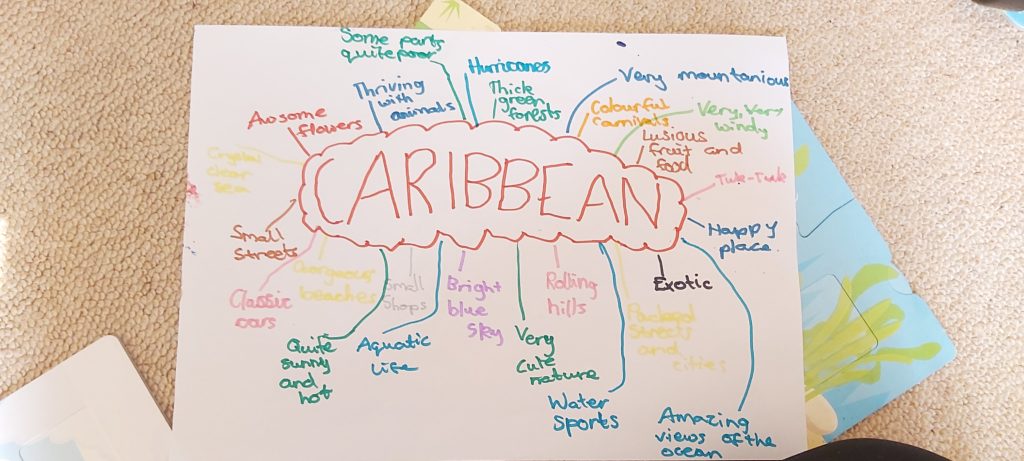 Some parts
quite poor
Hurricanes
Thriving
with
animals
Thick
green
forests
Very mountanious
Colourful
carnivals
Very, Very
windy
Awsome
flowers
Lusious
fruit and
food
Crystal
clear
sea
CARIBBEAN
Tuk-Tuk
Small
streets
Happy
place
Gorgeous
beaches
Small
Shops
Bright
blue
sky
Rolling
hills
Exotic
Classic
cars
Packed
streets
and
cities
Quite
sunny
and
hot
Aquatic
Life
Very
cute
nature
Water
sports
Amazing
views of the
ocean